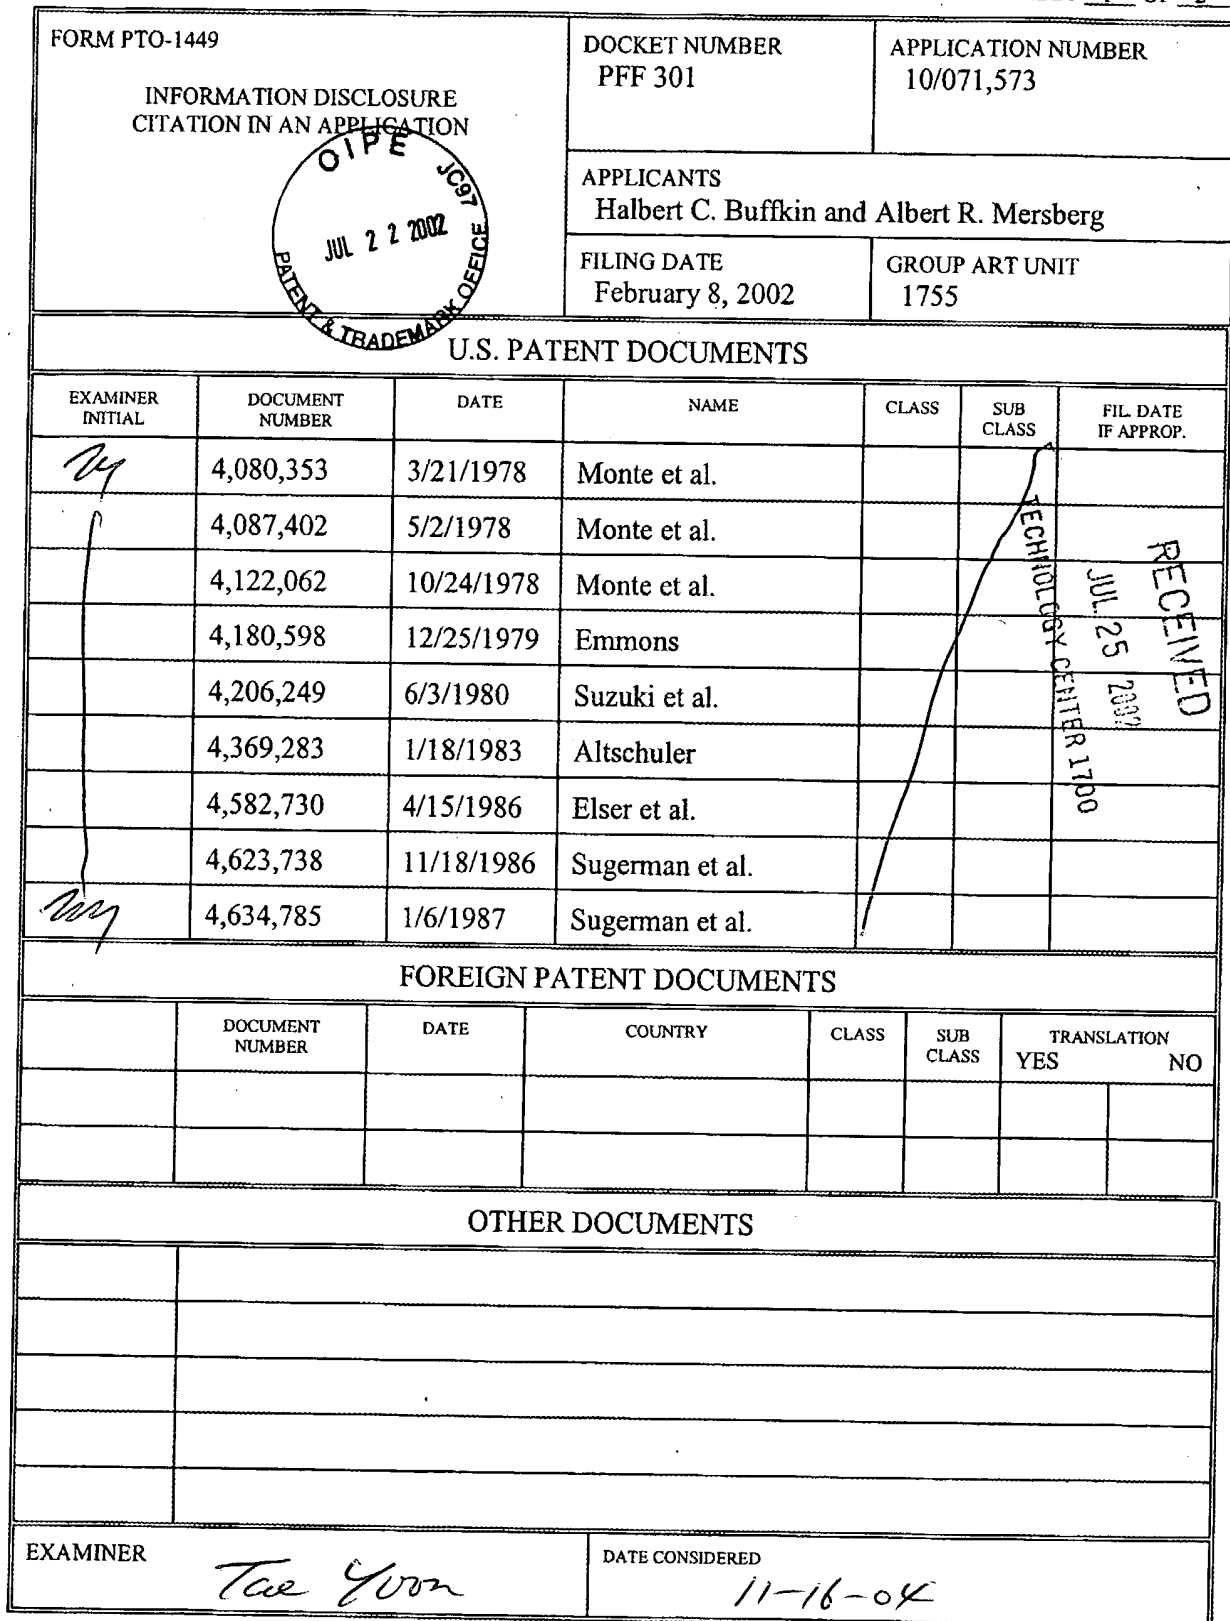 FORM PTO-1449
INFORMATION DISCLOSURE
CITATION IN AN APPLICATION
OIPE JC97
JUL 2 2 2002
PATENT & TRADEMARK OFFICE
DOCKET NUMBER
PFF 301
APPLICATION NUMBER
10/071,573
APPLICANTS
Halbert C. Buffkin and Albert R. Mersberg
FILING DATE
February 8, 2002
GROUP ART UNIT
1755
U.S. PATENT DOCUMENTS
EXAMINER INITIAL DOCUMENT NUMBER DATE NAME CLASS SUB CLASS FIL. DATE IF APPROP.
4,080,353 3/21/1978 Monte et al.
4,087,402 5/2/1978 Monte et al.
4,122,062 10/24/1978 Monte et al.
4,180,598 12/25/1979 Emmons
4,206,249 6/3/1980 Suzuki et al.
4,369,283 1/18/1983 Altschuler
4,582,730 4/15/1986 Elser et al.
4,623,738 11/18/1986 Sugerman et al.
4,634,785 1/6/1987 Sugerman et al.
RECEIVED
JUL 25 2002
TECHNOLOGY CENTER 1700
FOREIGN PATENT DOCUMENTS
DOCUMENT NUMBER DATE COUNTRY CLASS SUB CLASS TRANSLATION YES NO
OTHER DOCUMENTS
EXAMINER
Tae Yoon
DATE CONSIDERED
11-16-04